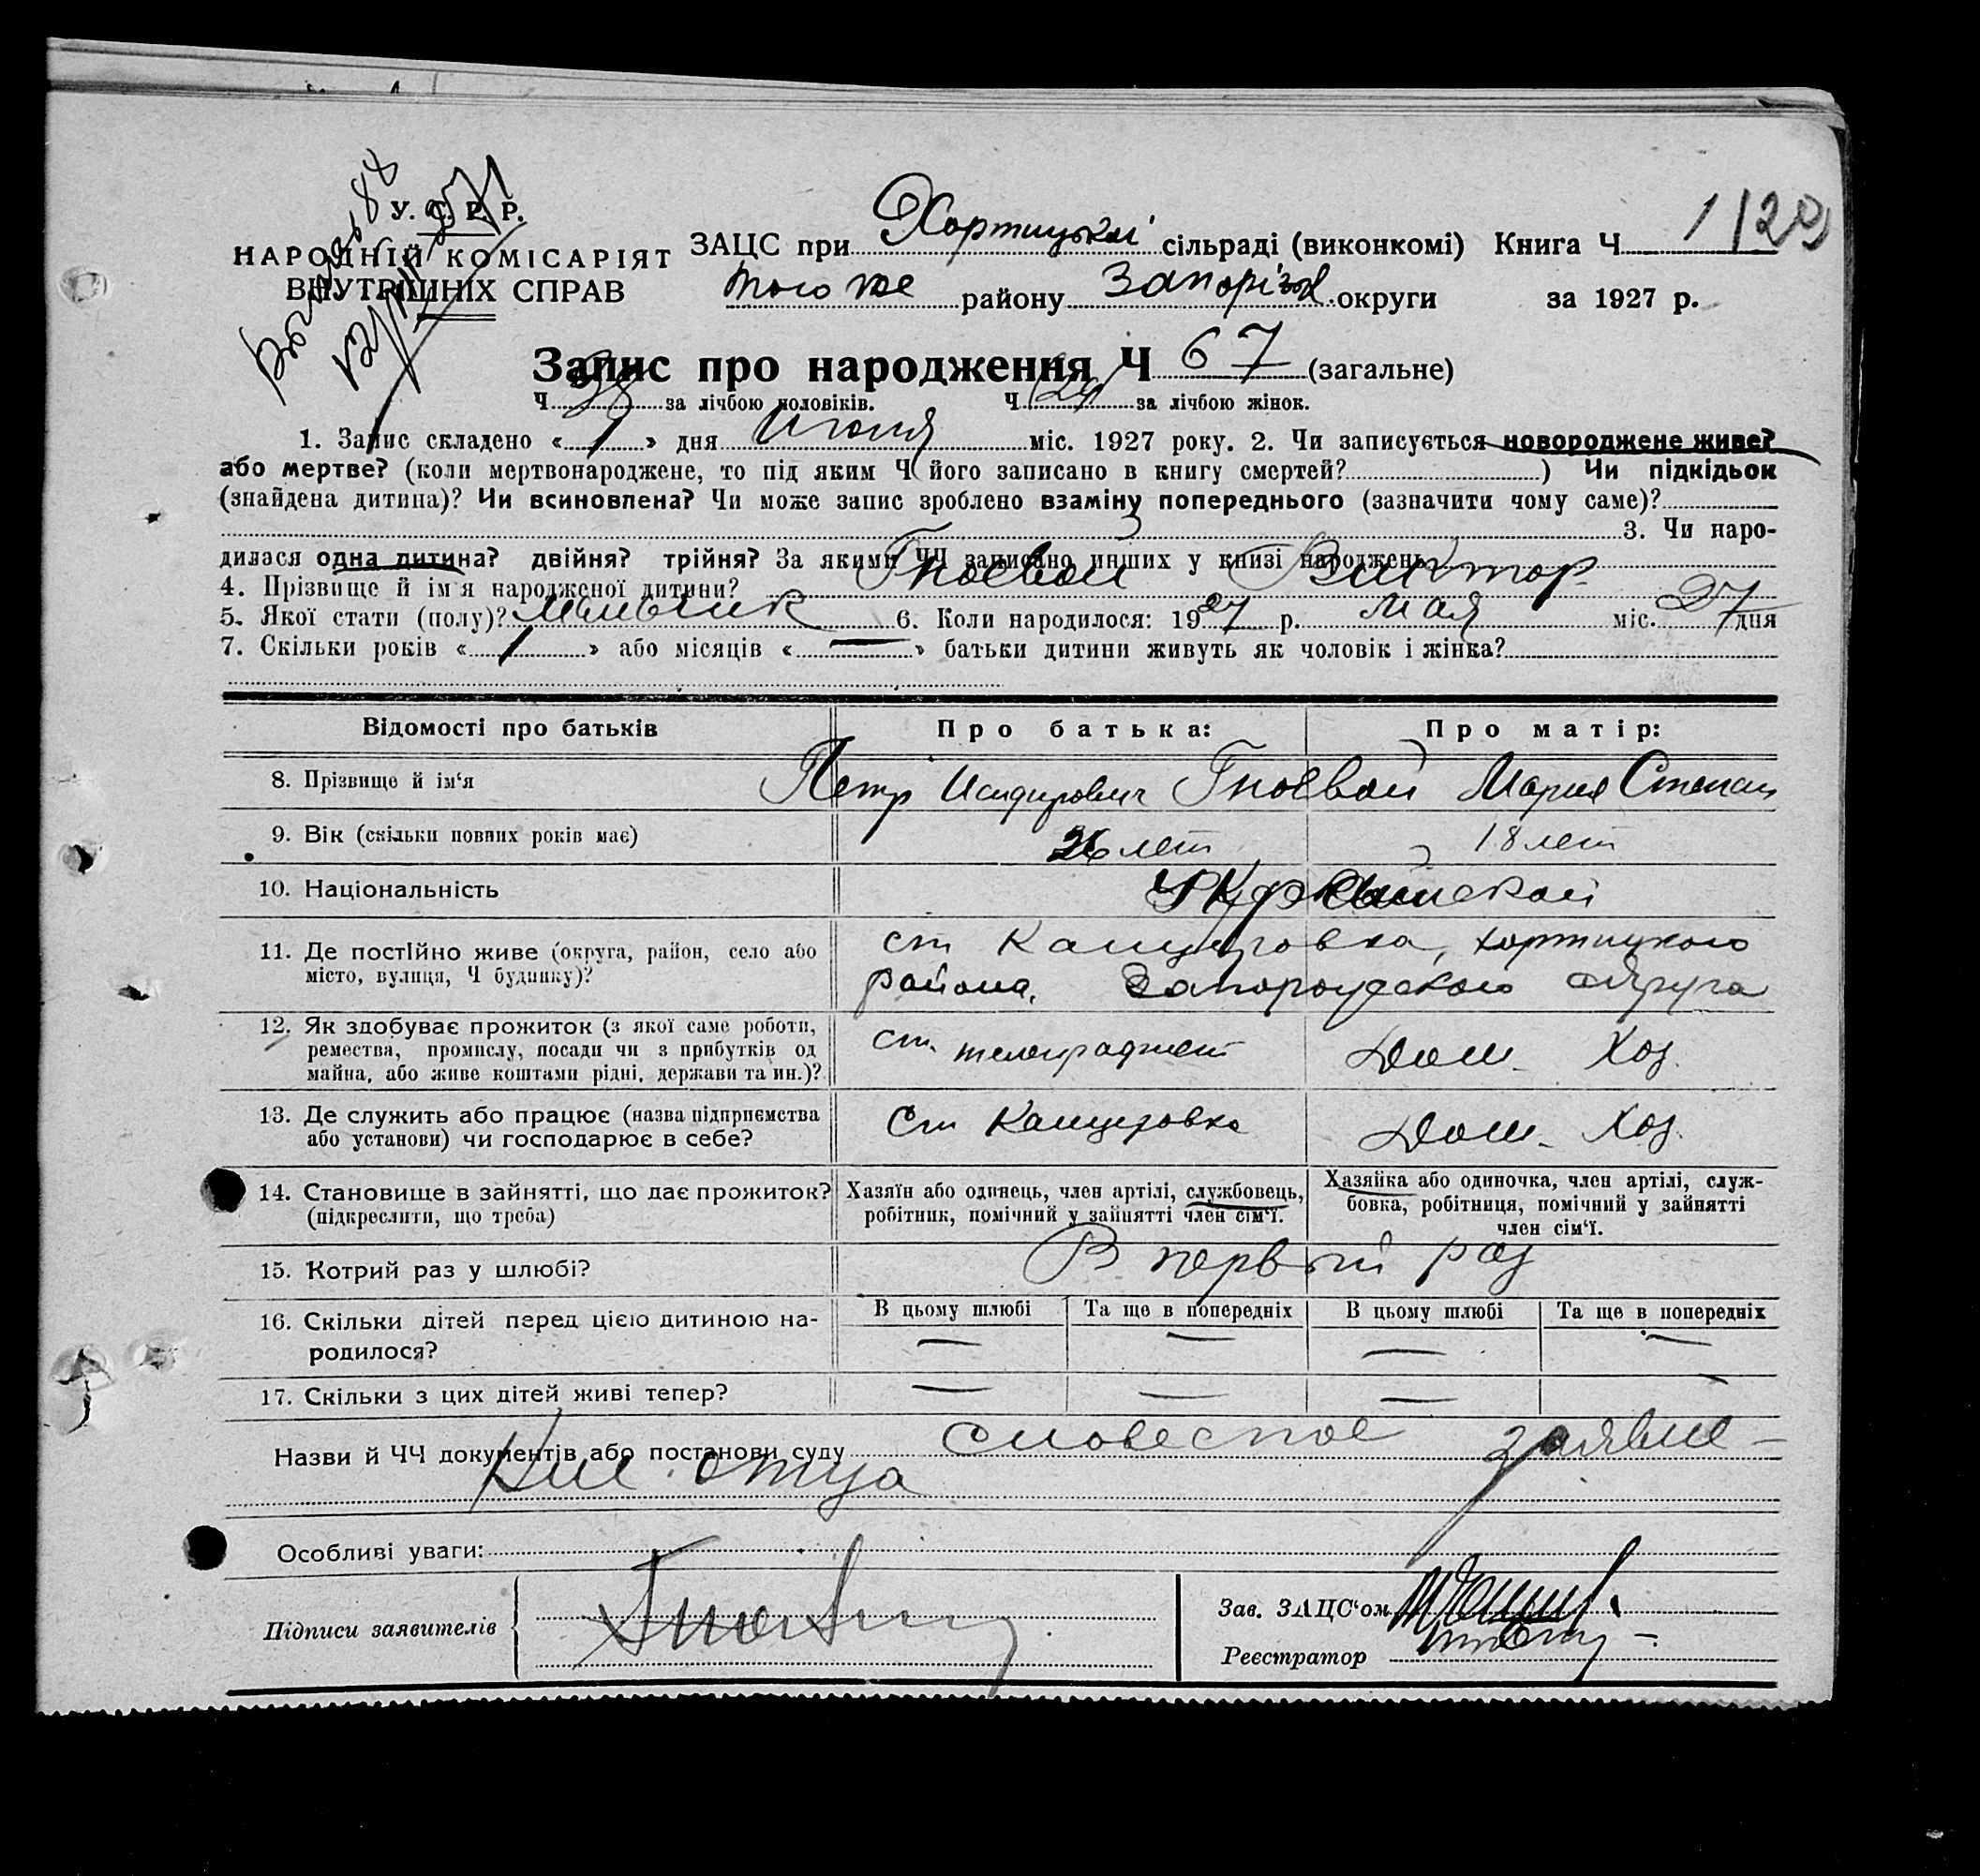 У. С. Р. Р.
НАРОДНІЙ КОМІСАРІЯТ
ВНУТРІШНІХ СПРАВ
ЗАЦС при Хортицькій сільраді (виконкомі) Книга Ч 1 | 29
того же району Запорізьк округи за 1927 р.
Запис про народження Ч 67 (загальне)
Ч 38 за лічбою чоловіків. Ч 29 за лічбою жінок.
1. Запис складено « 1 » дня Июня міс. 1927 року. 2. Чи записується новороджене живе?
або мертве? (коли мертвонароджене, то під яким Ч його записано в книгу смертей? ) Чи підкідьок
(знайдена дитина)? Чи всиновлена? Чи може запис зроблено взаміну попереднього (зазначити чому саме)?
3. Чи наро-
дилася одна дитина? двійня? трійня? За якими ЧЧ записано инших у книзі народжень
4. Прізвище й ім'я народженої дитини? Гноевой Виктор
5. Якої стати (полу)? мальчик 6. Коли народилося: 1927 р. мая міс. 27 дня
7. Скільки років « 1 » або місяців « — » батьки дитини живуть як чоловік і жінка?
Відомості про батьків Про батька: Про матір:
8. Прізвище й ім'я Петр Исидорович Гноевой Мария Степан
9. Вік (скільки повних років має) 26 лет 18 лет
10. Національність Украинской
11. Де постійно живе (округа, район, село або ст Канцеровка, Хортицкого
місто, вулиця, Ч будинку)? района, Запорожского округа
12. Як здобуває прожиток (з якої саме роботи,
ремества, промислу, посади чи з прибутків од
майна, або живе коштами рідні, держави та ин.)? ст. телеграфист Дом. Хоз.
13. Де служить або працює (назва підприємства
або установи) чи господарює в себе? Ст Канцеровка Дом. Хоз.
14. Становище в зайнятті, що дає прожиток?
(підкреслити, що треба)
Хазяїн або одинець, член артілі, службовець,
робітник, помічний у зайнятті член сім'ї.
Хазяйка або одиночка, член артілі, служ-
бовка, робітниця, помічний у зайнятті
член сім'ї.
15. Котрий раз у шлюбі? В первый раз
16. Скільки дітей перед цією дитиною на-
родилося?
В цьому шлюбі Та ще в попередніх В цьому шлюбі Та ще в попередніх
— — — —
17. Скільки з цих дітей живі тепер? — — — —
Назви й ЧЧ документів або постанови суду словесное заявле-
ние отца
Особливі уваги:
Підписи заявителів Гноевой
Зав. ЗАЦС'ом
Реєстратор